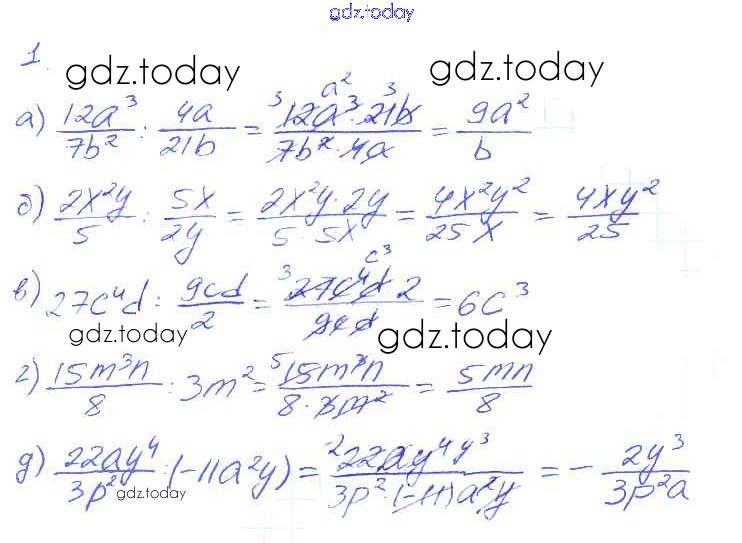 gdz.today
1.
gdz.today gdz.today
а) 12a³/7b² : 4a/21b = 12a³·21b/7b²·4a = 9a²/b
3 a² 3
б) 2x²y/5 : 5x/2y = 2x²y·2y/5·5x = 4x²y²/25x = 4xy²/25
в) 27c⁴d : 9cd/2 = 27c⁴d 2/9cd = 6c³
3 c³
gdz.today gdz.today
г) 15m³n/8 : 3m² = 15m³n/8·3m² = 5mn/8
5
д) 22ay⁴/3p² : (-11a²y) = 22ay⁴/3p²·(-11)a²y = - 2y³/3p²a
2 y³
gdz.today